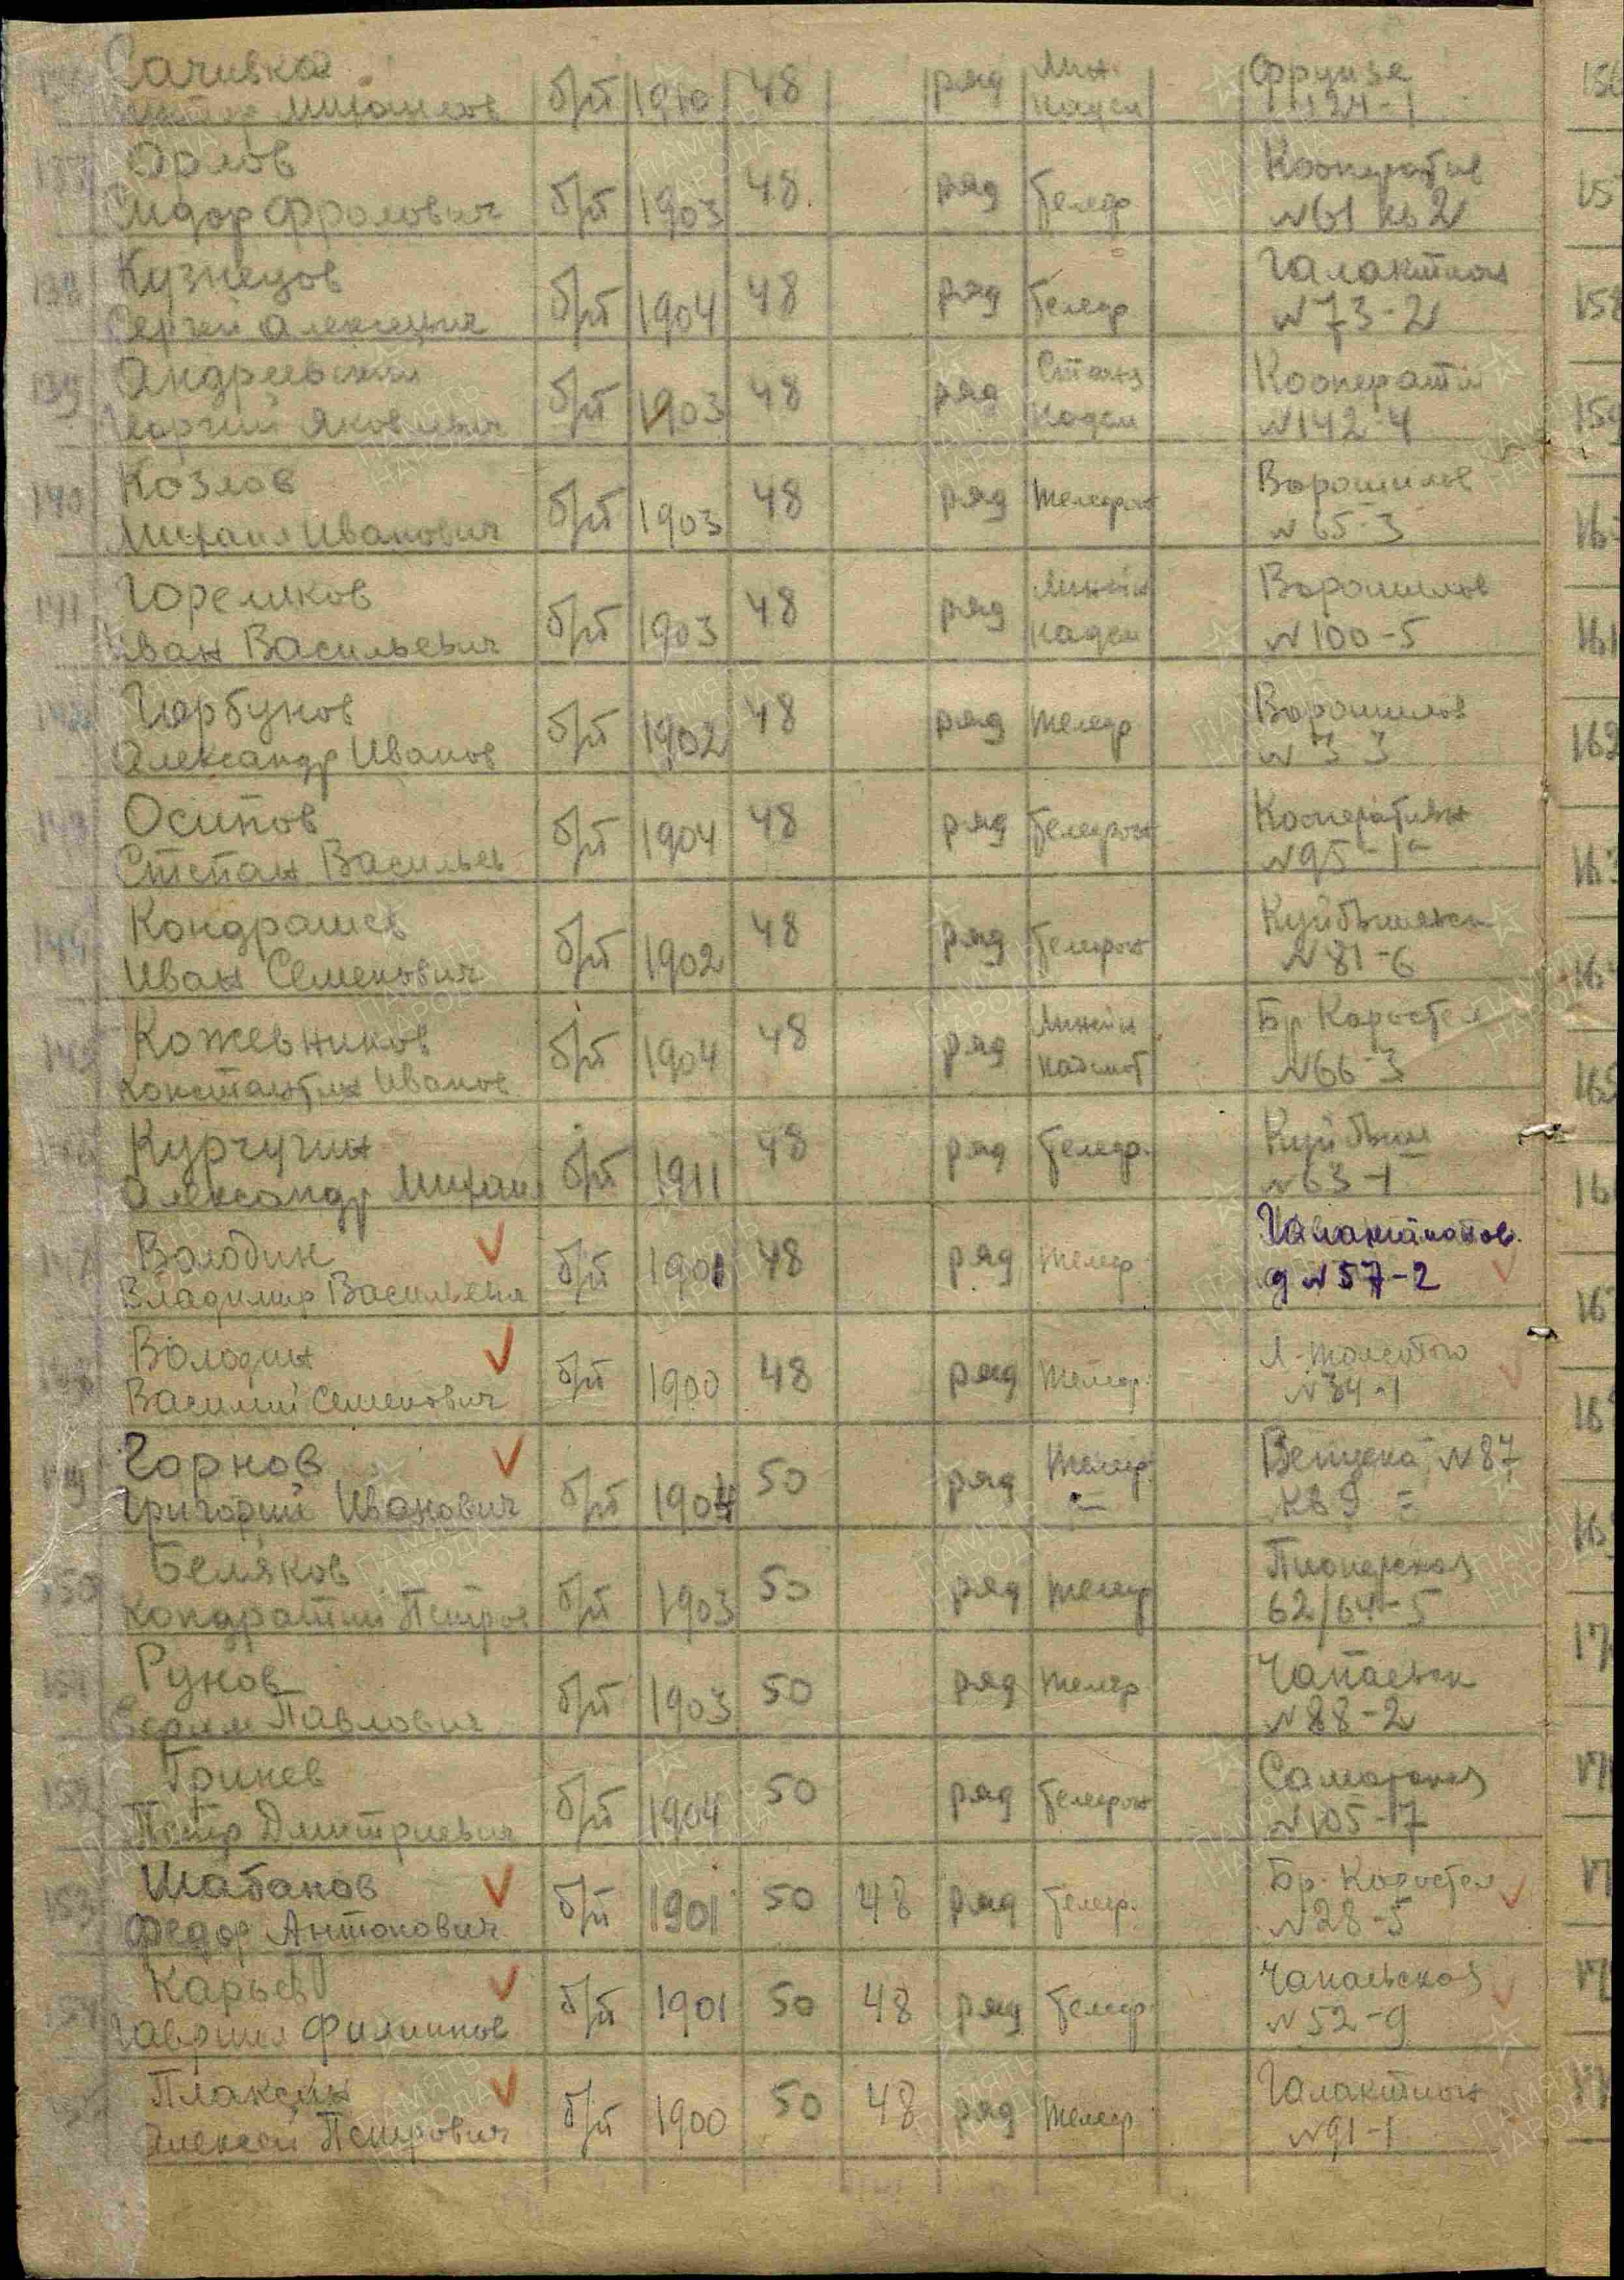 Сачивка
Михайлов
б/п 1910 48 ряд Лин. Надсм
Фрунзе
124-1
137 Орлов
Сидор Фролович
б/п 1903 48 ряд Телеф
Кооператив
№61 кв 2
138 Кузнецов
Сергей Алексеевич
б/п 1904 48 ряд Телеф
Галактион
№73-2
139 Андриевский
Георгий Яковлевич
б/п 1903 48 ряд Станц Надсм
Кооперати
№142-4
140 Козлов
Михаил Иванович
б/п 1903 48 ряд Телефон
Ворошилов
№65-3
141 Гореликов
Иван Васильевич
б/п 1903 48 ряд Линейн Надсм
Ворошилов
№100-5
142 Горбунов
Александр Иванов
б/п 1902 48 ряд Телеф
Ворошилов
№3 3
143 Осипов
Степан Васильев
б/п 1904 48 ряд Телефон
Кооперативн
№95-1а
144 Кондрашев
Иван Семенович
б/п 1902 48 ряд Телефон
Куйбышевск
№81-6
145 Кожевников
Константин Иванов
б/п 1904 48 ряд Линейн Надсмот
Бр Коростел
№66-3
146 Курчугин
Александр Михаил
б/п 1911 48 ряд Телеф.
Куйбыш
№63-1
147 Володин
Владимир Васильевич
б/п 1901 48 ряд Телеф
Галактионов.
д №57-2
148 Володин
Василий Семенович
б/п 1900 48 ряд Телеф.
Л-Толстого
№34-1
149 Горнов
Григорий Иванович
б/п 1904 50 ряд Телеф.
№87
кв 9 =
150 Беляков
Кондратий Петров
б/п 1903 50 ряд Телеф
Пионерская
62/64-5
151 Рунов
Павлович
б/п 1903 50 ряд Телеф
Чапаевск
№88-2
152 Гринев
Петр Дмитриевич
б/п 1904 50 ряд Телефон
Самарская
№105-7
153 Шабанов
Федор Антонович
б/п 1901 50 48 ряд Телеф.
Бр. Коростел
№28-5
154 Карьев
Гавриил Филиппов
б/п 1901 50 48 ряд Телеф
Чапаевская
№52-9
Плаксин
Алексей Петрович
б/п 1900 50 48 ряд Телеф
Галактион
№91-1